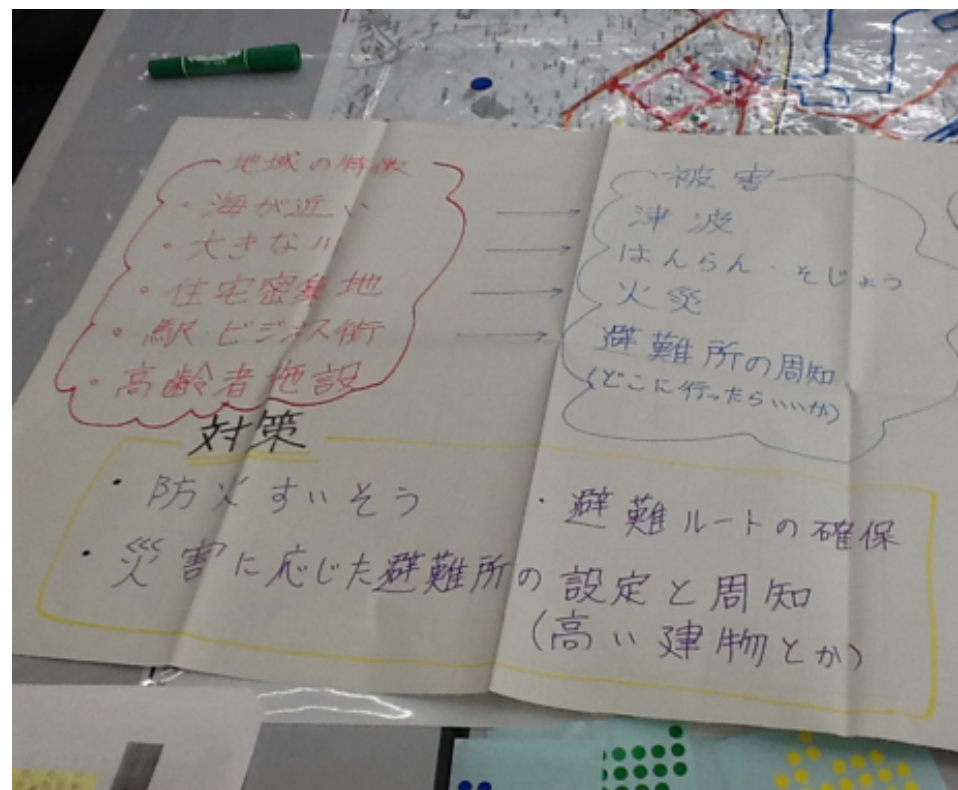 地域の特徴
・海が近い
・大きな川
・住宅密集地
・駅・ビジネス街
・高齢者施設
被害
津波
はんらん・そじょう
火災
避難所の周知
(どこに行ったらいいか)
対策
・防火すいそう
・避難ルートの確保
・災害に応じた避難所の設定と周知
(高い建物とか)